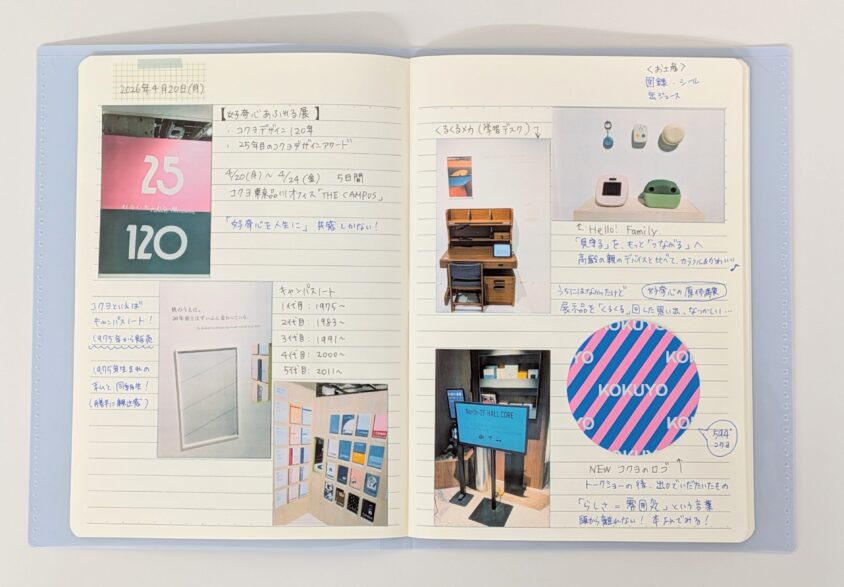 2026年4月20日(月)
【好奇心あふれる展】
・コクヨデザイン120年
・25年目のコクヨデザインアワード
4/20(月)〜4/24(金) 5日間
コクヨ東京品川オフィス「THE CAMPUS」
「好奇心を人生に」共感しかない!
25
120
コクヨといえば
キャンパスノート!
1975年から販売
1975年生まれの
同級生!
(勝手に親近感)
机のうえは、
20年前とはずいぶん変わっている。
キャンパスノート
1代目:1975〜
2代目:1983〜
3代目:1991〜
4代目:2000〜
5代目:2011〜
〈お土産〉
図録・シール
缶ジュース
くるくるメカ(学習デスク)
Hello! Family.
「見守る」を、もっと「つながる」へ
高齢の親のデバイスと比べて、カラフル&かわいい♪
うちにはなかったけど
好奇心の原体験
展示品を「くるくる」回した思い出、なつかしい…
North-2F HALL CORE
KOKUYO
KOKUYO
KOKUYO
594
コクヨ
NEW コクヨのロゴ↑
トークショーの後、出口でいただいたもの
「らしさ=雰囲気」という言葉
頭から離れない!本よんでみる!